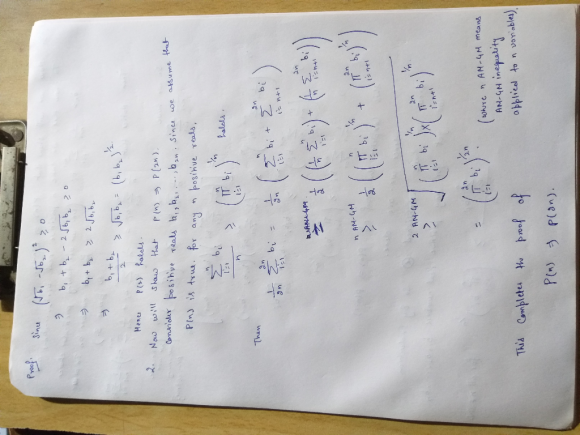 Proof. Since (√b₁ - √b₂)² ≥ 0
⇒ b₁ + b₂ - 2√b₁b₂ ≥ 0
⇒ b₁ + b₂ ≥ 2√b₁b₂
⇒ (b₁ + b₂)/2 ≥ √b₁b₂ = (b₁b₂)^{1/2}
Hence P(2) holds.
2. Now will show that P(n) ⇒ P(2n).
Consider positive reals b₁, b₂, ..., b₂ₙ. Since we assume that
P(n) is true, for any n positive reals,
(∑_{i=1}^{n} bᵢ)/n ≥ (∏_{i=1}^{n} bᵢ)^{1/n} holds.
Then
1/2n ∑_{i=1}^{2n} bᵢ = 1/2n (∑_{i=1}^{n} bᵢ + ∑_{i=n+1}^{2n} bᵢ)
= 1/2 ((1/n ∑_{i=1}^{n} bᵢ) + (1/n ∑_{i=n+1}^{2n} bᵢ))
n AM-GM ≥ 1/2 ((∏_{i=1}^{n} bᵢ)^{1/n} + (∏_{i=n+1}^{2n} bᵢ)^{1/n})
2 AM-GM ≥ √((∏_{i=1}^{n} bᵢ)^{1/n} × (∏_{i=n+1}^{2n} bᵢ)^{1/n})
= (∏_{i=1}^{2n} bᵢ)^{1/2n}.
(where n AM-GM means
AM-GM inequality
applied to n variables).
This completes the proof of
P(n) ⇒ P(2n).